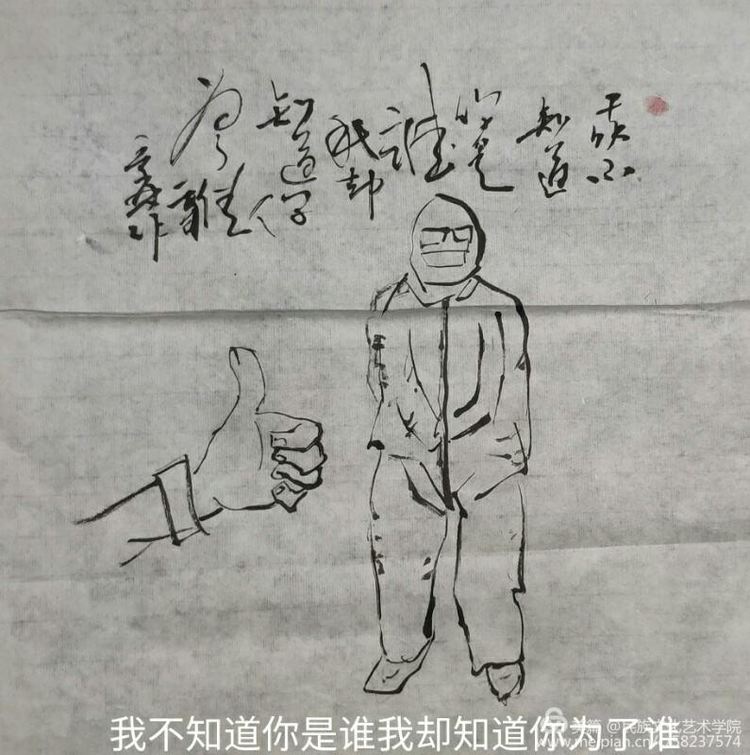 我不
知道
你是
誰
我却
知道你
为了
誰
我不知道你是谁我却知道你为了谁
美篇 @民族文化艺术学院